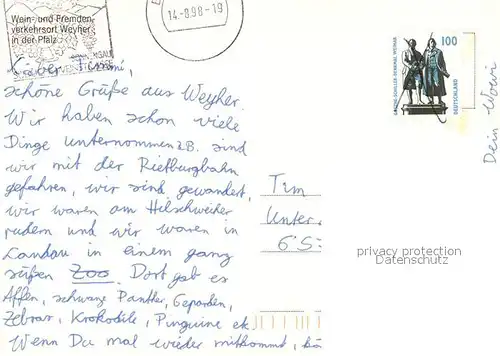 Wein- und Fremden-
verkehrsort Weyher
in der Pfalz
14.-8.98-19
100
GOETHE-SCHILLER-DENKMAL WEIMAR
DEUTSCHLAND
Lieber Timmi,
schöne Grüße aus Weyher.
Wir haben schon viele
Dinge unternommen z.B. sind
wir mit der Rietburgbahn
gefahren, wir sind gewandert,
wir waren am Hilschweiher
rudern und wir waren in
Landau in einem ganz
süßen Zoo. Dort gab es
Affen, schwarze Panther, Geparden,
Zebras, Krokodile, Pinguine etc.
Wenn Du mal wieder mitkommst, kö
Dein
Tim
Unter.
6 S
privacy protection
Datenschutz